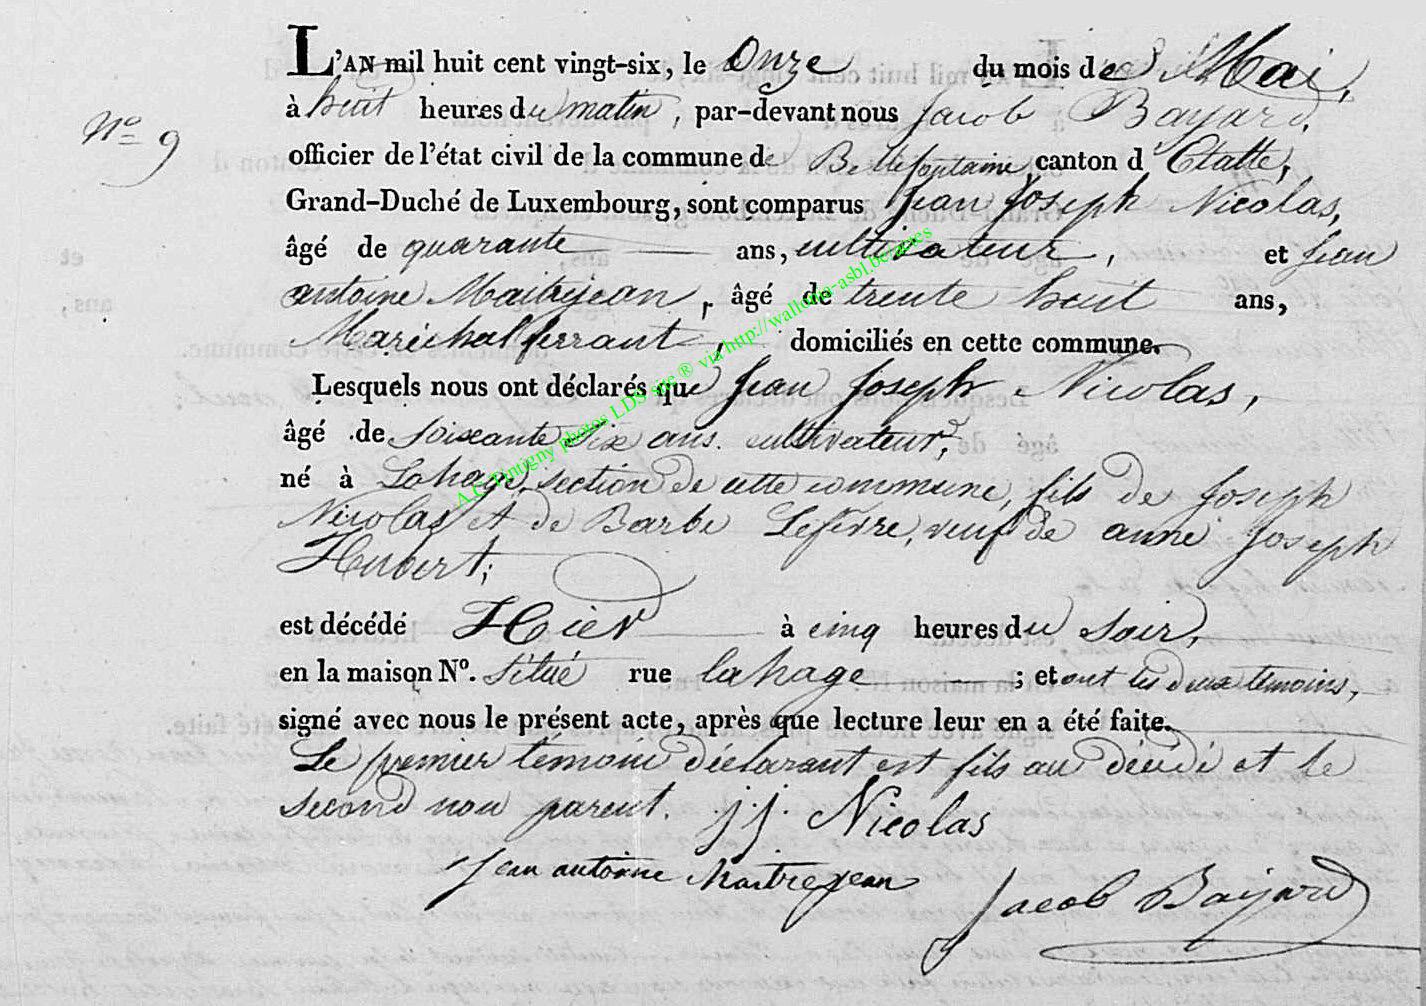 L'AN mil huit cent vingt-six, le Onze du mois de Mai,
à huit heures du matin, par-devant nous Jacob Bayard,
N° 9
officier de l'état civil de la commune de Bellefontaine, canton d'Etalle,
Grand-Duché de Luxembourg, sont comparus Jean Joseph Nicolas,
âgé de quarante ans, cultivateur, et Jean
antoine Maitrejean, âgé de trente huit ans,
Maréchal ferrant, domiciliés en cette commune.
Lesquels nous ont déclarés que Jean Joseph Nicolas,
âgé de soixante six ans. cultivateur,
né à Lahage, section de cette commune, fils de Joseph
Nicolas et de Barbe Lefevre, veuf de anne Joseph
Hubert;
est décédé Hier à cinq heures du soir,
en la maison N°. situé rue lahage ; et ont les deux temoins,
signé avec nous le présent acte, après que lecture leur en a été faite.
Le premier temoin déclarant est fils au décédé et le
second non parent. j. j. Nicolas
Jean antoine Maitrejean
Jacob Bayard
A.C. Tintigny photos LDS site ® via http://wallonia-asbl.be/actes